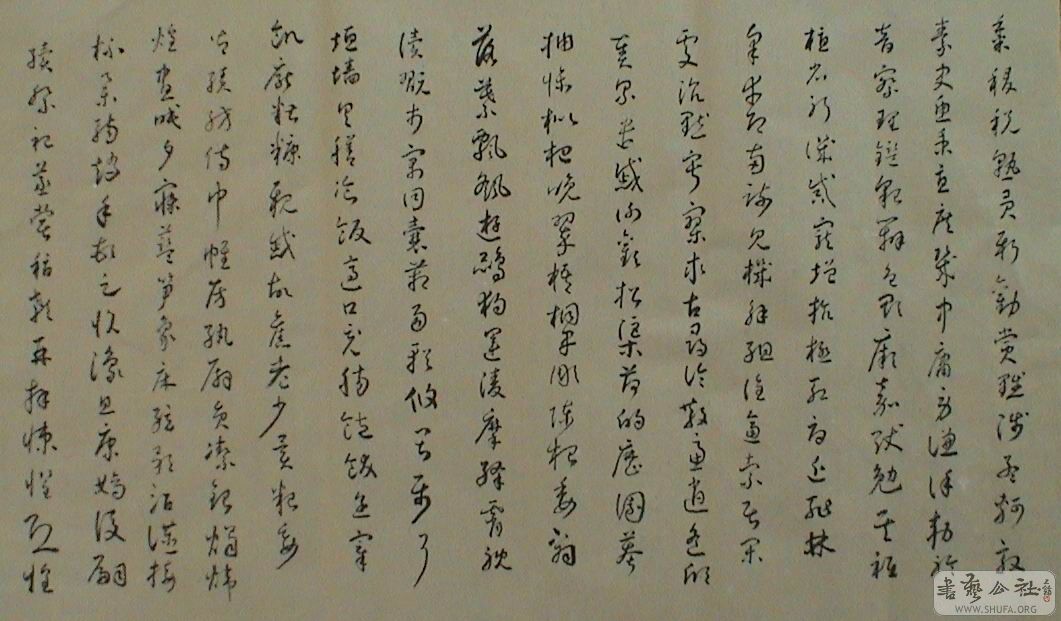 黍稷稅熟貢新勸賞黜陟孟軻敦
素史魚秉直庶幾中庸勞謙謹敕聆
音察理鑑貌辨色貽厥嘉猷勉其祗
植省躬譏誡寵增抗極殆辱近恥林
皋幸即兩疏見機解組誰逼索居閑
處沉默寂寥求古尋論散慮逍遙欣
奏累遣慼謝歡招渠荷的歷園莽
抽條枇杷晚翠梧桐早凋陳根委翳
落葉飄颻遊鵾獨運凌摩絳霄耽
讀翫市寓目囊箱易輶攸畏屬耳
垣墻具膳飡飯適口充腸飽飫烹宰
飢厭糟糠親戚故舊老少異糧妾
御績紡侍巾帷房紈扇員潔銀燭煒
煌晝眠夕寐藍筍象床弦歌酒讌接
杯舉觴矯手頓足悅豫且康嫡後嗣
續祭祀蒸嘗稽顙再拜悚懼恐惶
書藝公社
WWW.SHUFA.ORG